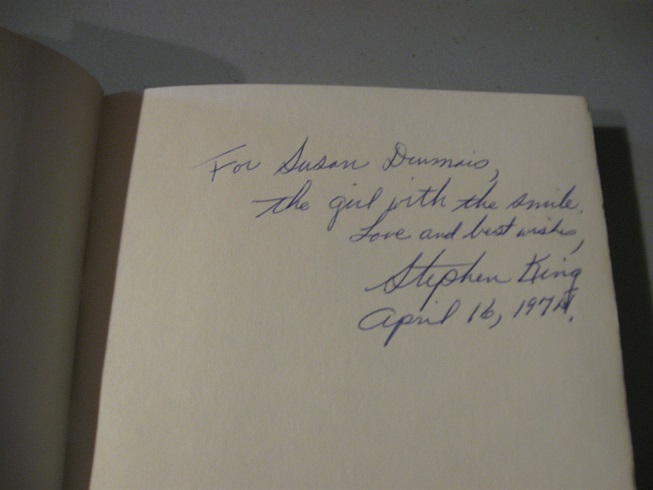 For Susan Dumais,
the girl with the smile.
Love and best wishes,
Stephen King
April 16, 1974.